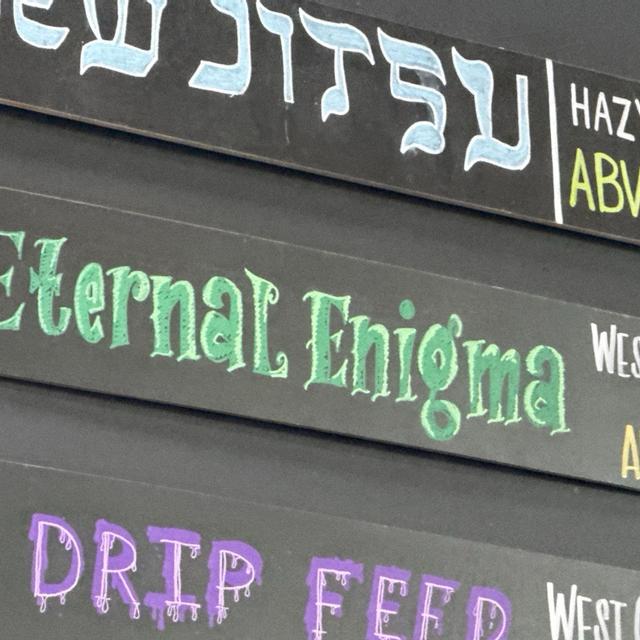 ew Jitsu
HAZY
ABV
Eternal Enigma
WES
A
DRIP FEED
WEST